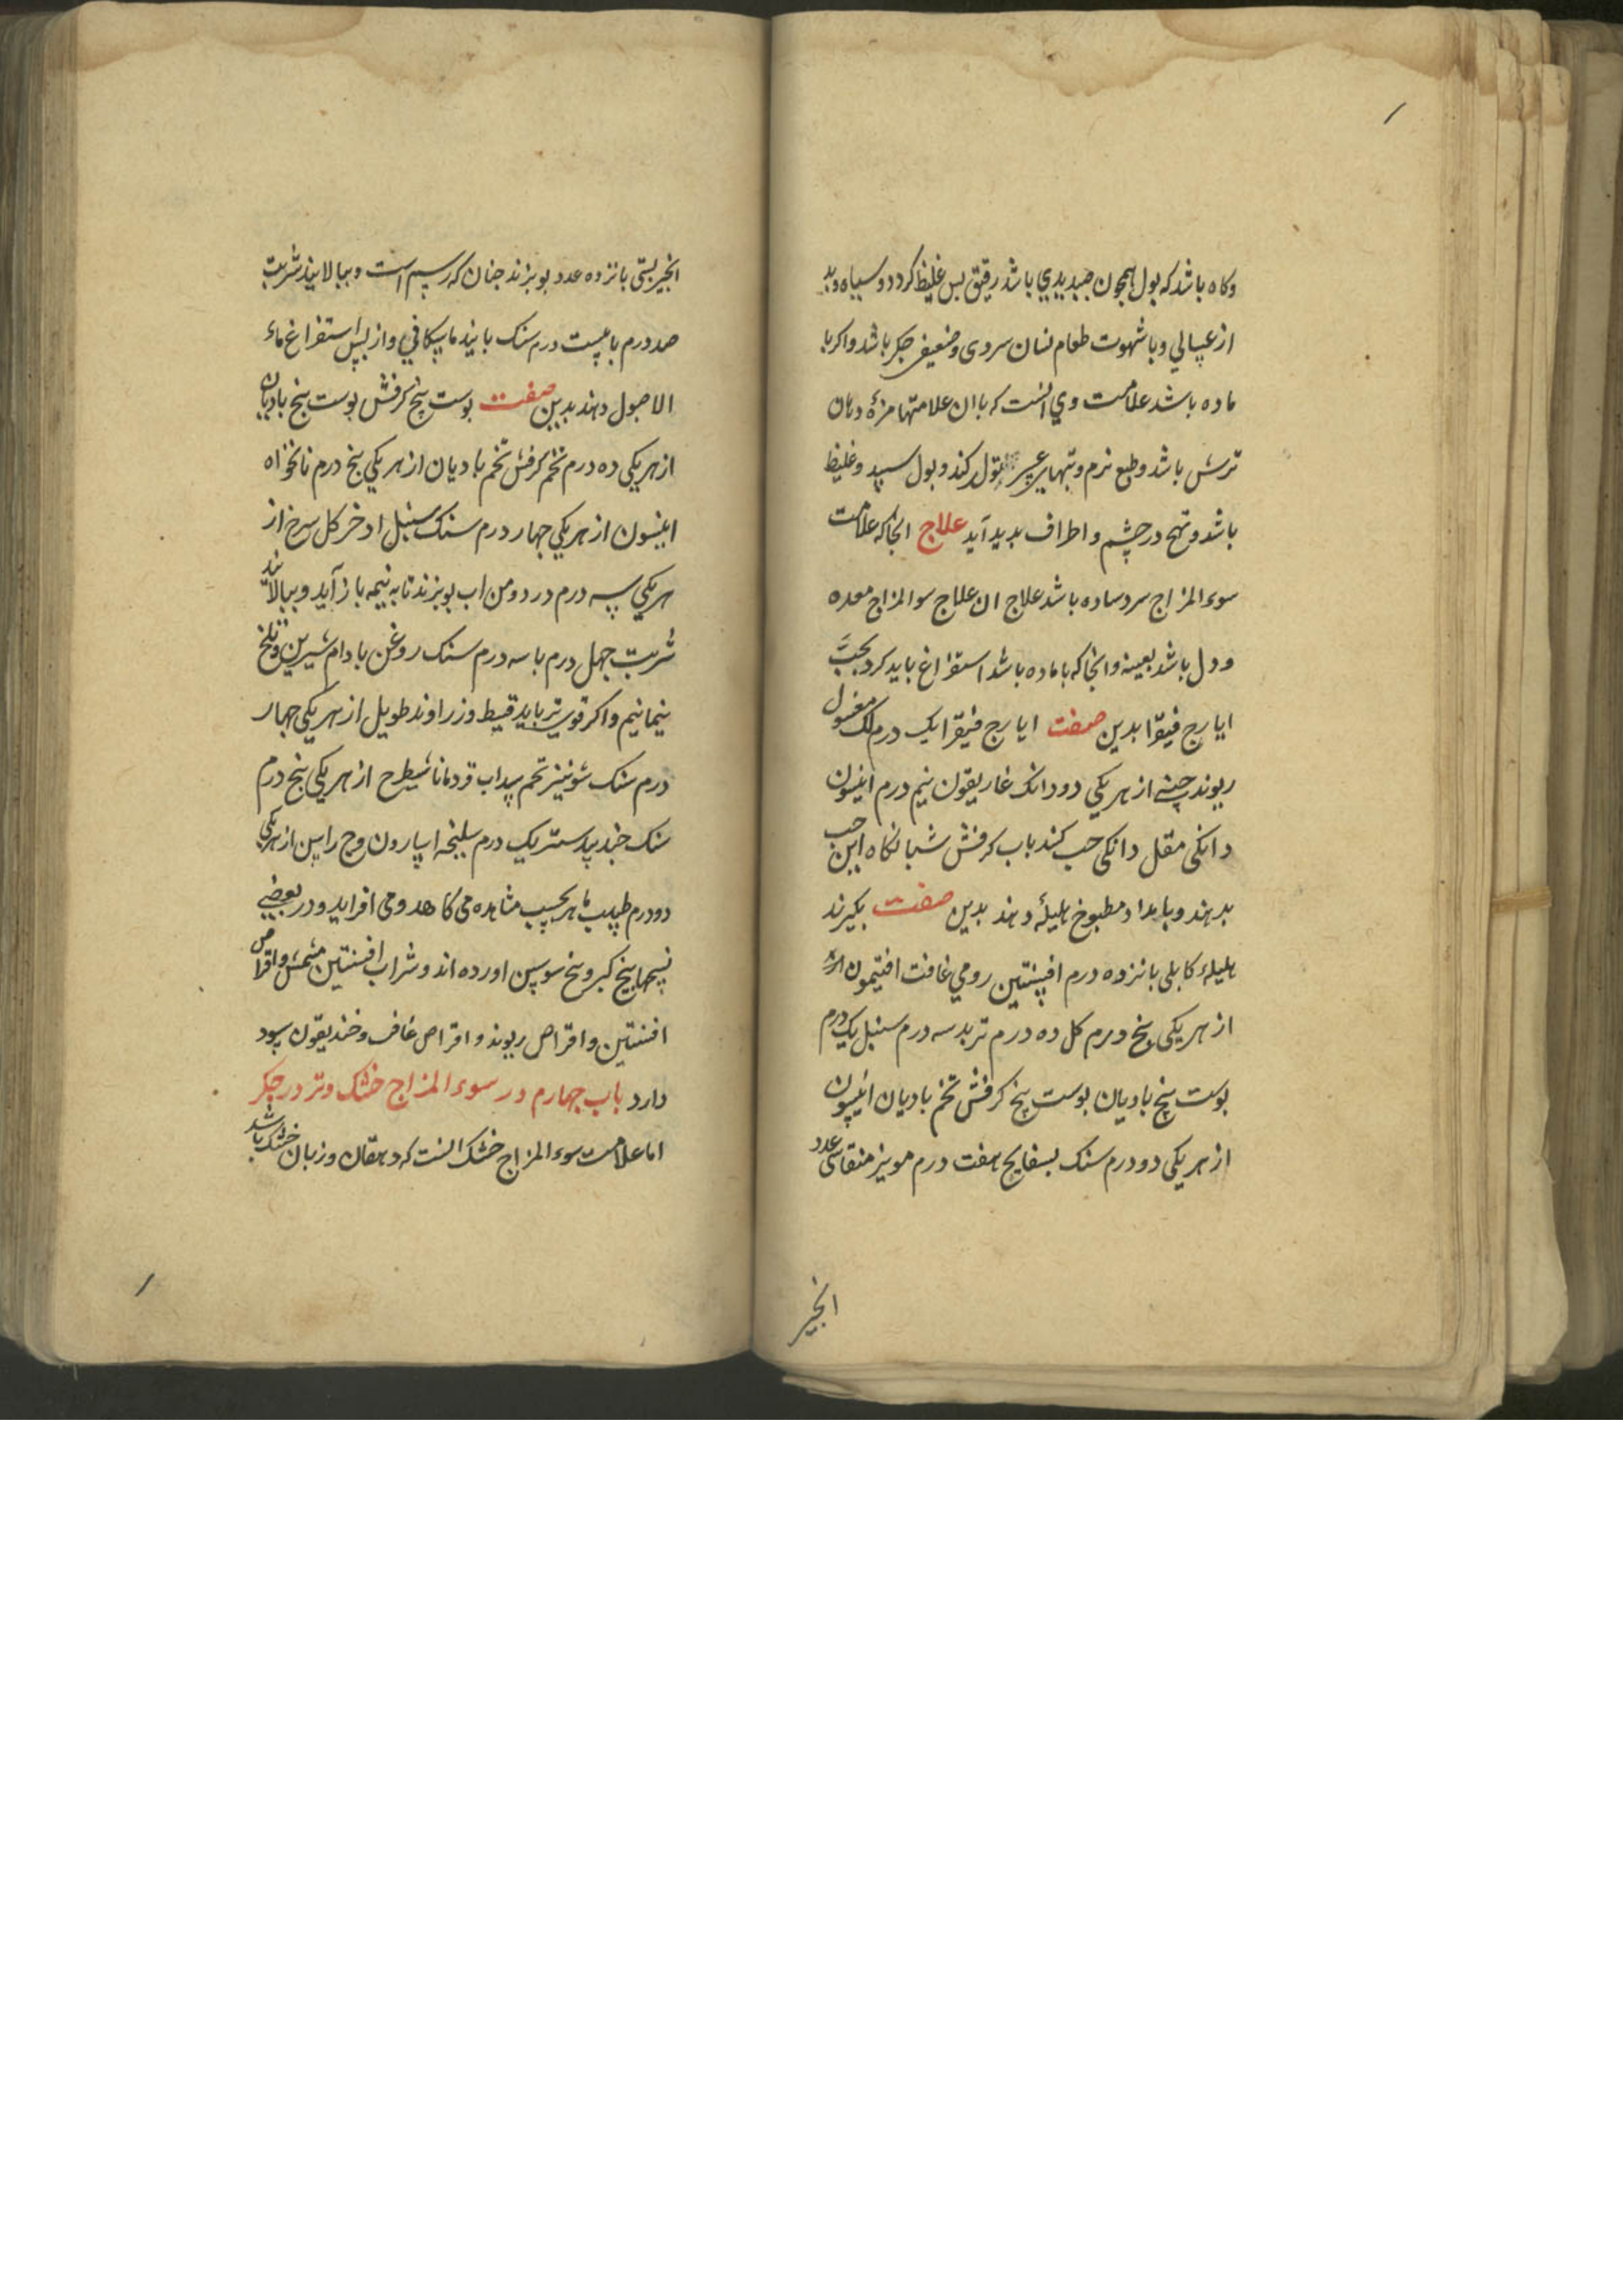 وکاه باشد که بول همچون صدیدی باشد رقیق بس غلیظ کردد و سیاه و بد
از غسالی و با شهوت طعام نسان سردی و ضعیفی جکر باشد و اکر با
ماده باشد علامت وی انست که با ان علامتها مزهٔ دهان
ترش باشد و طبع نرم و تبهای تولد کند و بول سپید و غلیظ
باشد و تهبج در چشم و اطراف بدید آید علاج انجا که علامت
سوء المزاج سرد ساده باشد علاج ان علاج سوالمزاج معده
و دل باشد بعینه و انجا که با ماده باشد استفراغ باید کرد بحبّ
ایارج فیقرا بدین صفت ایارج فیقرا یک درم لک مغسول
ریوند چینی از هر یکی دو دانک غاریقون نیم درم انیسون
دانکی مقل دانکی حب کنند باب کرفش شبانکاه این حب
بدهند و بامداد مطبوخ هلیلهٔ دهند بدین صفت بکیرند
هلیلهٔ کابلی بانزده درم افسنتین رومی غافت افتیمون
از هر یکی بنج درم کل ده درم تربد سه درم سنبل یک درم
بوست بیخ بادیان بوست بیخ کرفش تخم بادیان انیسون
از هر یکی دو درم سنک بسفایج هفت درم مویز منقا سی عدد
انجیر
انجیر بستی بانزده عدد بوبزند جنان که رسم است و ببالایند شربت
صد درم با بیست درم سنک باینذ ماسکافی و از بس استفراغ ماء
الاصول دهند بدین صفت بوست بیخ کرفش بوست بیخ بادیان
از هر یکی ده درم تخم کرفش تخم بادیان از هر یکی بنج درم نانخواه
انیسون از هر یکی جهار درم سنک سنبل اذخر کل سرخ از
هر یکی سه درم در دو من اب بوبزند تا به نیمه باز آید و ببالایند
شربت جهل درم با سه درم سنک روغن بادام شیرین و تلخ
نیمانیم و اکر قوی‌تر باید قسط و زراوند طویل از هر یکی جهار
درم سنک شونیز تخم سداب قردمانا شیطرح از هر یکی بنج درم
سنک جندبیدستر یک درم سلیخه اسارون وج راسن از هر یکی
دو درم طبیب ماهر بحسب مشاهده می کاهد و می افزاید و در بعضی
نسخها بیخ کبر و بیخ سوسن اورده اند و شراب افسنتین مشمش و اقراص
افسنتین و اقراص ریوند و اقراص غافت و خندیقون سود
دارد باب جهارم در سوء المزاج خشک و تر در جکر
اما علامت سوء المزاج خشک انست که دهان و زبان خشک باشد